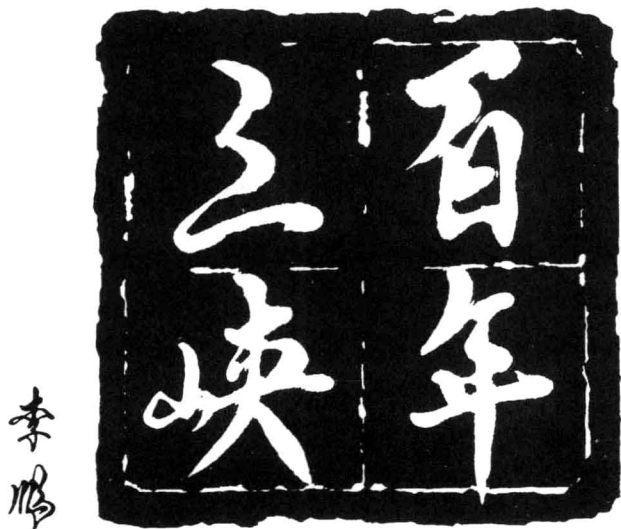 百年
三峡
李鹏